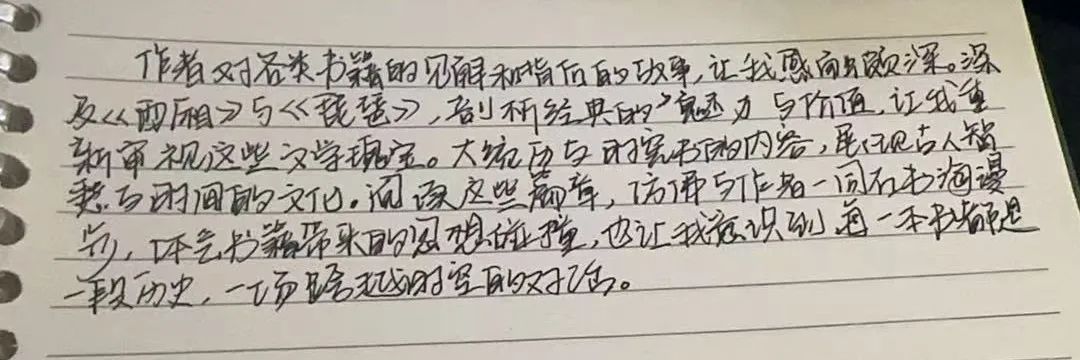 作者对各类书籍的见解和背后的故事,让我感向颇深。深
及《西厢》与《琵琶》,剖析经典的魅力与价值,让我重
新审视这些文学瑰宝。大统历与时宪书的内容,展现古人智
慧与时间的文化。阅读这些篇章,仿佛与作者一同在书海漫
步,体会书籍带来的思想碰撞,也让我意识到每一本书都是
一段历史,一场跨越时空的对话。